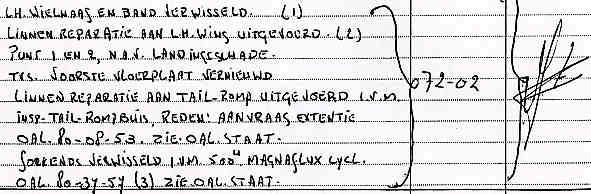 LH. WIELNAAF EN BAND VERWISSELD. (1)
LINNEN REPARATIE AAN LH. WING UITGEVOERD. (2)
PUNT 1 EN 2, N.A.V. LANDINGSSCHADE.
TVS. VOORSTE VLOERPLAAT VERNIEUWD
072-02
LINNEN REPARATIE AAN TAIL-ROMP UITGEVOERD I.V.M.
INSP-TAIL-ROMPBUIS, REDEN: AANVRAAG EXTENTIE
OAL. 80-08-53. ZIE OAL. STAAT.
VERWISSELD I.V.M. 500H MAGNAFLUX CYCL.
OAL. 80-37-57 (3) ZIE OAL. STAAT.